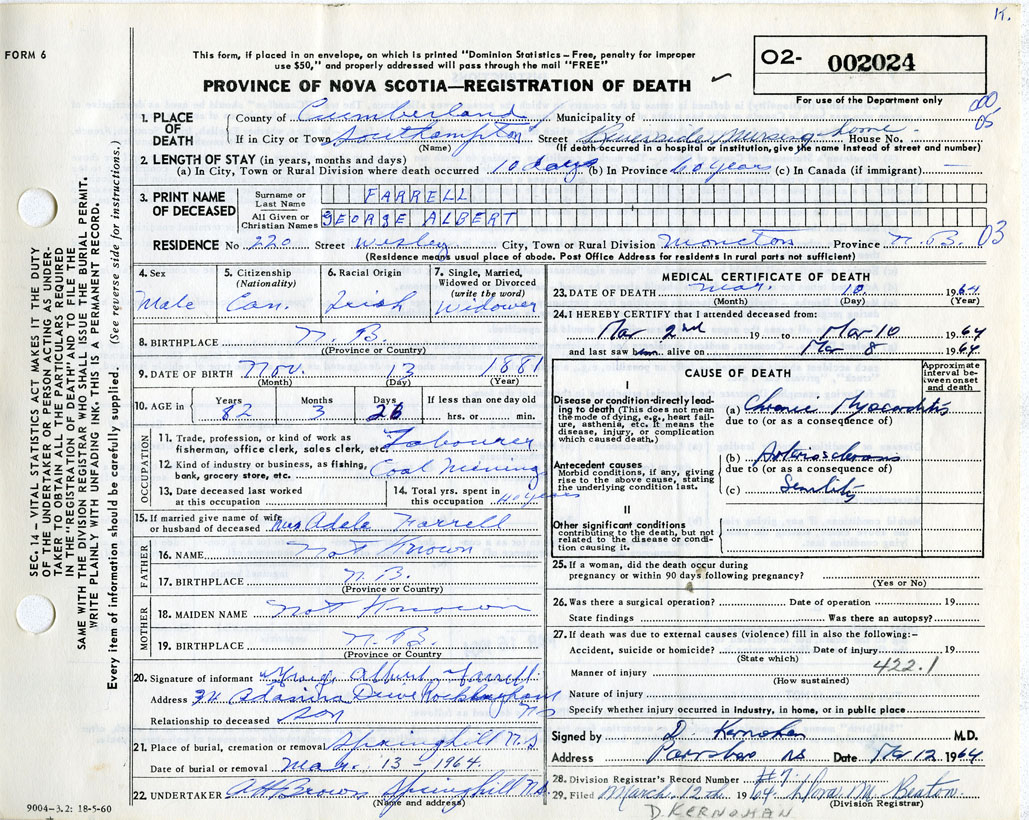 K.
FORM 6
This form, if placed in an envelope, on which is printed "Dominion Statistics – Free, penalty for improper
use $50," and properly addressed will pass through the mail "FREE"
O2- 002024
For use of the Department only
PROVINCE OF NOVA SCOTIA—REGISTRATION OF DEATH
000
05
1. PLACE OF DEATH
County of Cumberland Municipality of
If in City or Town Southampton Street Riverside Nursing Home House No.
(Name) (If death occurred in hospital or institution, give the name instead of street and number)
2. LENGTH OF STAY (in years, months and days)
(a) In City, Town or Rural Division where death occurred 10 days (b) In Province 60 years (c) In Canada (if immigrant)
3. PRINT NAME OF DECEASED
Surname or Last Name FARRELL
All Given or Christian Names GEORGE ALBERT
RESIDENCE No 220 Street Wesley City, Town or Rural Division Moncton Province N.B. 03
(Residence means usual place of abode. Post Office Address for residents in rural parts not sufficient)
4. Sex
Male
5. Citizenship
(Nationality)
Can.
6. Racial Origin
Irish
7. Single, Married,
Widowed or Divorced
(write the word)
Widower
8. BIRTHPLACE N.B.
(Province or Country)
9. DATE OF BIRTH Nov. 13 1881
(Month) (Day) (Year)
10. AGE in
Years Months Days
82 3 26
If less than one day old
hrs. or min.
OCCUPATION
11. Trade, profession, or kind of work as
fisherman, office clerk, sales clerk, etc. Labourer
12. Kind of industry or business, as fishing,
bank, grocery store, etc. Coal Mining
13. Date deceased last worked
at this occupation
14. Total yrs. spent in
this occupation 40 years
15. If married give name of wife
or husband of deceased Mrs Adele Farrell
FATHER
16. NAME Not Known
17. BIRTHPLACE N.B.
(Province or Country)
MOTHER
18. MAIDEN NAME Not Known
19. BIRTHPLACE N.B.
(Province or Country
20. Signature of informant Albert Farrell
Address Drive Rockingham
NS
Relationship to deceased son
21. Place of burial, cremation or removal Springhill N.S
Date of burial or removal Mar. 13 – 1964.
22. UNDERTAKER AH Brown Springhill N.S.
(Name and address)
9004–3.2: 18-5-60
MEDICAL CERTIFICATE OF DEATH
23. DATE OF DEATH Mar. 10 1964
(Month) (Day) (Year)
24. I HEREBY CERTIFY that I attended deceased from:
Mar 2nd 19 to Mar 10 1964
and last saw him alive on Mar 8 1964
CAUSE OF DEATH
Approximate
interval be-
tween onset
and death
I
Disease or condition directly lead-
ing to death (This does not mean
the mode of dying, e.g., heart fail-
ure, asthenia, etc. It means the
disease, injury, or complication
which caused death.)
(a) Chronic Myocarditis
due to (or as a consequence of)
Antecedent causes
Morbid conditions, if any, giving
rise to the above cause, stating
the underlying condition last.
(b) Arteriosclerosis
due to (or as a consequence of)
(c) Senility
II
Other significant conditions
contributing to the death, but not
related to the disease or condi-
tion causing it.
25. If a woman, did the death occur during
pregnancy or within 90 days following pregnancy?
(Yes or No)
26. Was there a surgical operation? Date of operation 19
State findings Was there an autopsy?
27. If death was due to external causes (violence) fill in also the following:–
Accident, suicide or homicide? Date of injury 19
(State which)
Manner of injury 422.1
(How sustained)
Nature of injury
Specify whether injury occurred in industry, in home, or in public place
Signed by D. Kernohan M.D.
Address Parrsboro NS Date Mar 12 1964
28. Division Registrar's Record Number #7
29. Filed March 12th 1964. M. Beaton
(Division Registrar)
D. KERNOHAN
SEC. 14 – VITAL STATISTICS ACT MAKES IT THE DUTY
OF THE UNDERTAKER OR PERSON ACTING AS UNDER-
TAKER TO OBTAIN ALL THE PARTICULARS REQUIRED
IN THE "REGISTRATION OF DEATH" AND TO FILE THE
SAME WITH THE DIVISION REGISTRAR WHO SHALL ISSUE THE BURIAL PERMIT.
WRITE PLAINLY WITH UNFADING INK. THIS IS A PERMANENT RECORD.
Every item of information should be carefully supplied. (See reverse side for instructions.)